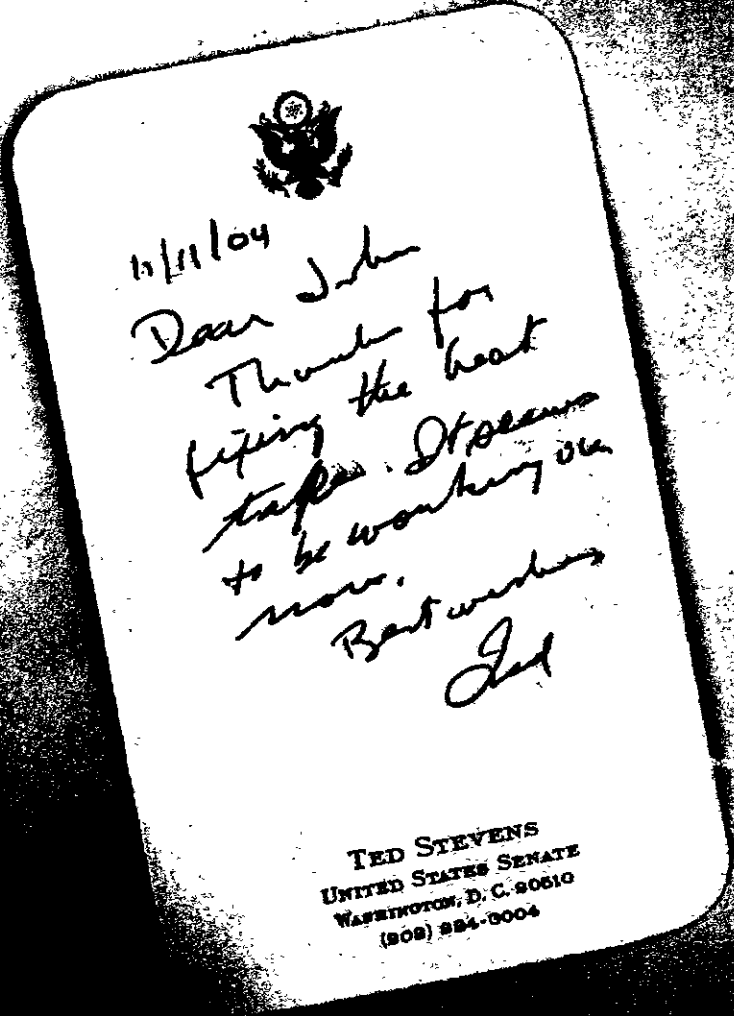 11/11/04
Dear John
Thanks for
fixing the heat
tape. It seems
to be working ok
now.
Best wishes
Ted
TED STEVENS
UNITED STATES SENATE
WASHINGTON, D. C. 20510
(202) 224-3004